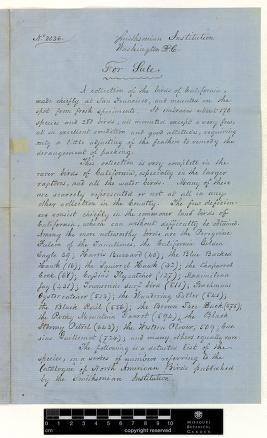 No. 2036. Smithsonian Institution
Washington D.C.
For Sale.
A collection of the Birds of California,
made chiefly at San Francisco, and mounted on the
spot from fresh specimens. It embraces about 170
species and 250 birds, all mounted except a very few,
all in excellent condition and good attitudes, requiring
only a little adjusting of the feathers to remedy the
derangement of packing.
This collection is very complete in the
rarer birds of California, especially in the larger
raptores, and all the water birds. Many of these
are scarcely represented or not at all in any
other collection in the Country. The few deficien-
cies consist chiefly in the commoner land birds of
California, which can without difficulty be obtained.
Among the more noteworthy birds are the Peregrine
Falcon of the Farallones, the California Golden
Eagle 39, Harris Buzzard (46), the Blue Backed
Hawk (16), the Squirrel Hawk (32), the Chaparral
Cock (68), Sayornis Flycatcher, Maximilian
Jay (431), Townsends Surf Bird, Bachmans
Oystercatcher (513), the Wandering Tattler (541),
the Black Rail (556), the Brown
the Rocky Mountain Garrot (596), the Black
Stormy Petrel (643), the Western Plover, 504,
Guillemot (726), and many others equally rare.
The following is a detailed list of the
species, in a series of numbers referring to the
Catalogue of North American Birds published
by the Smithsonian Institution.
MISSOURI
BOTANICAL
GARDEN
cm
copyright reserved